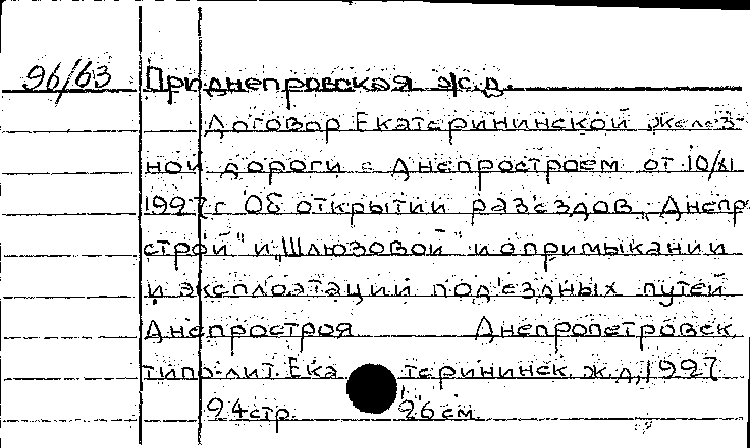 96/63 Приднепровская ж.д.
Договор Екатерининской желез-
ной дороги с Днепростроем от 10/XI
1927г. Об открытии раз'ездов „Днепр
строй" и „Шлюзовой" и о примыкании
и эксплоатации под'ездных путей
Днепростроя Днепропетровск
типо-лит. Екатерининск ж.д, 1927
24стр. 26см.